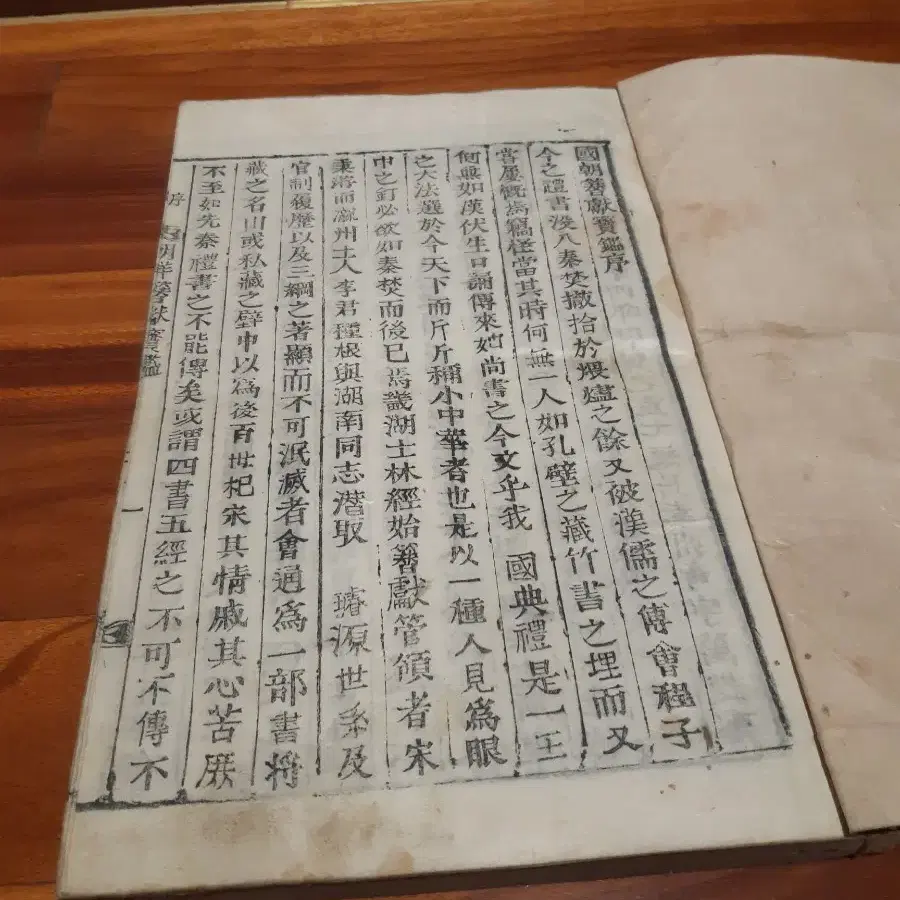 國朝籍獻寶鑑序
今之禮書沒入秦焚撤拾於煨燼之餘又破漢儒之傳會程子
嘗屢慨焉竊怪當其時何無一人如孔壁之藏竹書之埋而又
何無如漢伏生口誦傳來如尚書之今文乎我 國典禮是一王
之大法選於今天下而斤斤稱小中華者也是以一種人見爲眼
中之釘必欲如秦焚而後已焉畿湖士林經始籍獻管領者宋
秉濟而羅州士人李君種根與湖南同志潛取 璿源世系及
官制履歷以及三綱之著顯而不可泯滅者會通爲一部書將
藏之名山或私藏之壁中以爲後百世杞宋其情戚其心苦厥
不至如先秦禮書之不能傳矣或謂四書五經之不可不傳不
序 獻寶鑑 一